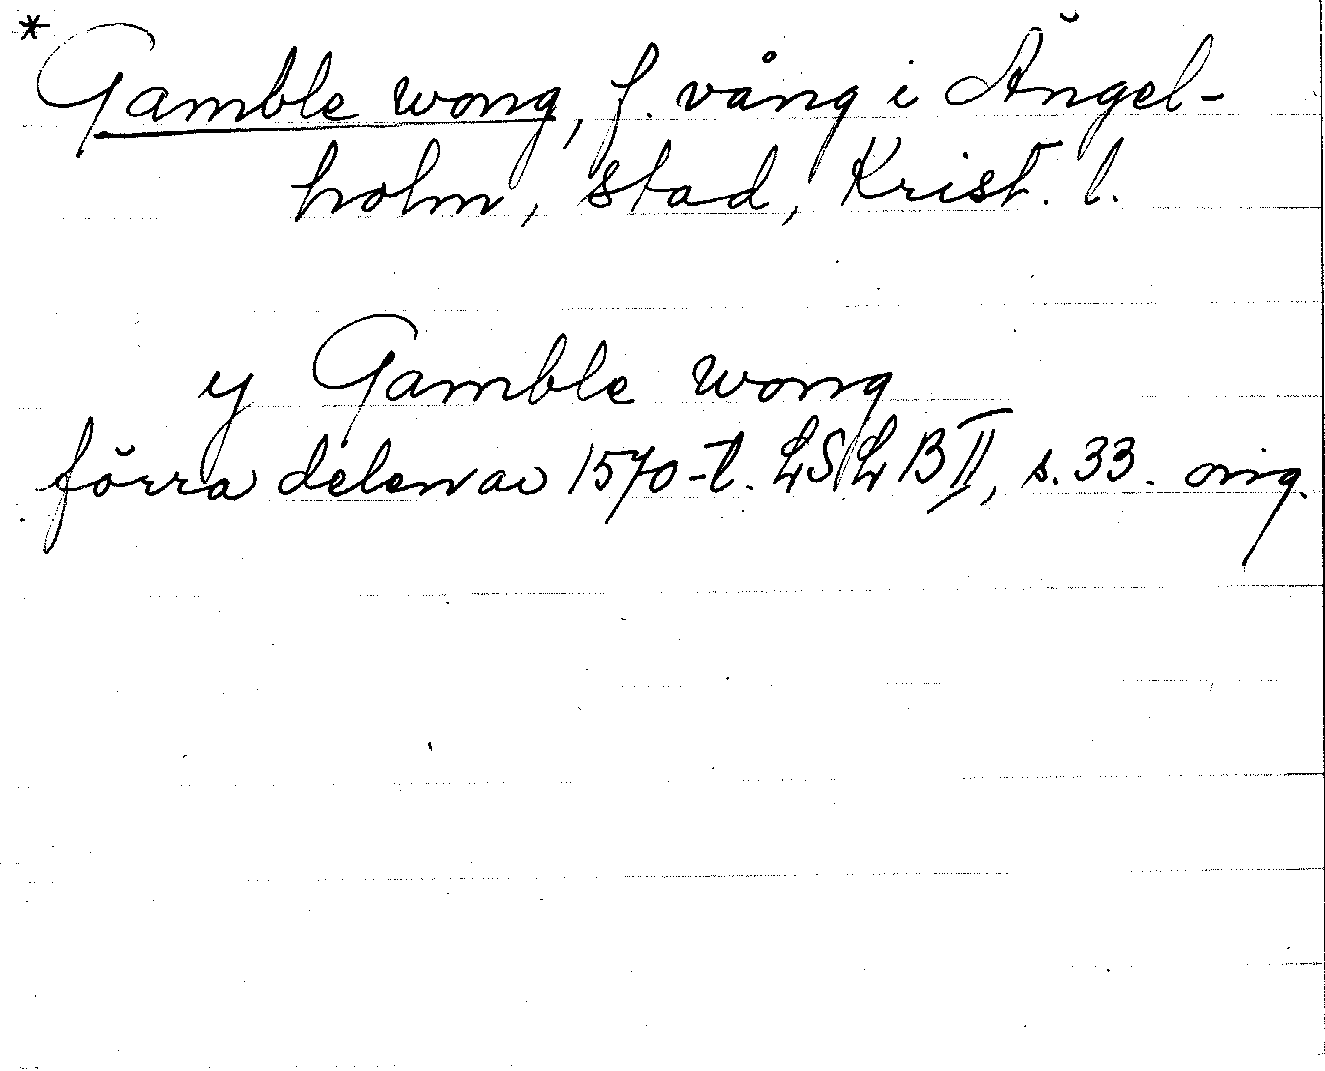 * Gamble wong, f. vång i Ängel-
holm, stad, Krist. l.
y Gamble wong
förra delen av 1570-t. LSLB II, s. 33. orig.